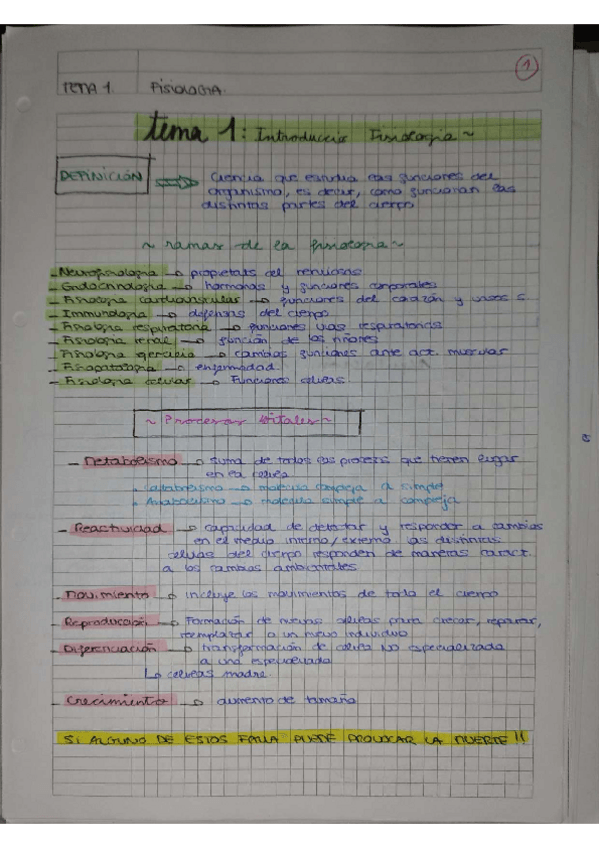 1
TEMA 1. FISIOLOGIA.
tema 1: Introducció Fisiologia ~
DEFINICIÓN ⇒ Ciencia que estudia las funciones del
organismo, es decir, como funcionan las
distintas partes del cuerpo
~ ramas de la fisiologia ~
- Neurofisiologia → propietats del
- Endocrinologia → hormonas y funciones corporales
- Fisiologia cardiovascular → funciones del corazón y vasos s...
- Immunologia → defensas del cuerpo
- Fisiologia respiratoria → funciones vias respiratorias
- Fisiologia renal → función de los riñones
- Fisiologia ejercicio → cambios funciones ante act. muscular
- Fisiopatologia → enfermedad
- Fisiologia celular → Funciones celulas.
~ Procesos vitales ~
- Metabolismo → suma de todos los procesos que tienen lugar
en la celula
· Catabolismo → molecula compleja a simple
· Anabolismo → molecula simple a compleja
- Reactividad → capacidad de detectar y responder a cambios
en el medio interno/externo. las distintas
celulas del cuerpo responden de maneras caract.
a los cambios ambientales
- Movimiento → incluye los movimientos de todo el cuerpo
- Reproducción → Formación de nuevas celulas para crecer, reparar,
reemplazar a un nuevo individuo
- Diferenciación → transformación de celula no especializada
a una especializada
↳ celulas madre.
- Crecimiento → aumento de tamaño
SI ALGUNO DE ESTOS FALLA PUEDE PROVOCAR LA MUERTE!!